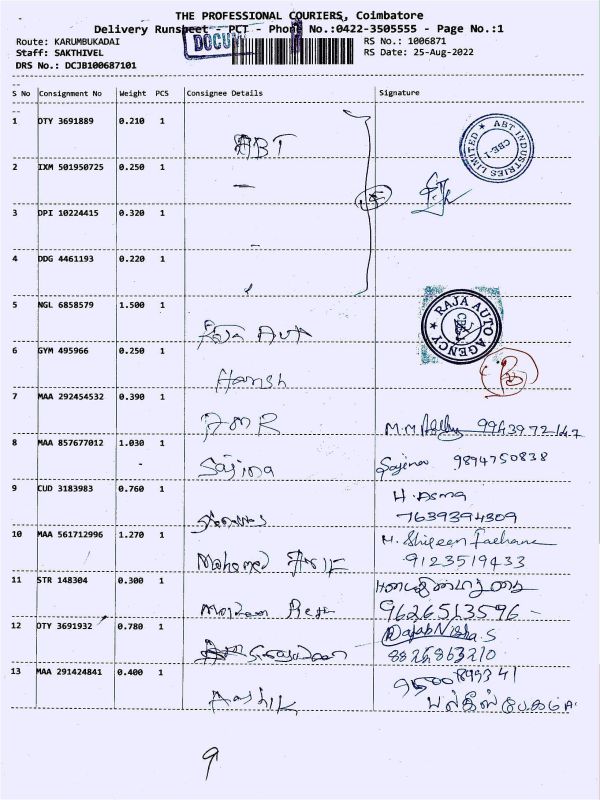 THE PROFESSIONAL COURIERS, Coimbatore
Delivery Runsheet - PCT - Phone No.:0422-3505555 - Page No.:1
DOCUM
Route: KARUMBUKADAI RS No.: 1006871
Staff: SAKTHIVEL RS Date: 25-Aug-2022
DRS No.: DCJB100687101
S No Consignment No Weight PCS Consignee Details Signature
1 OTY 3691889 0.210 1 ABT
ABT INDUSTRIES LIMITED ★ CBE-1
2 IXM 501950725 0.250 1 —
3 DPI 10224415 0.320 1
4 DDG 4461193 0.220 1
5 NGL 6858579 1.500 1 Raja Auto
★ RAJA AUTO AGENCY
6 GYM 495966 0.250 1 Harish
7 MAA 292454532 0.390 1 M.M 9943972147
8 MAA 857677012 1.030 1 Sajina Sajina 9894750838
9 CUD 3183983 0.760 1 H. Asma
7639394309
10 MAA 561712996 1.270 1 Mohamed M. Shireen Farhana
9123519433
11 STR 148304 0.300 1
9626513596
12 OTY 3691932 0.780 1 RajabNisha.S
8825863210
13 MAA 291424841 0.400 1 Aashik
9500899341
9